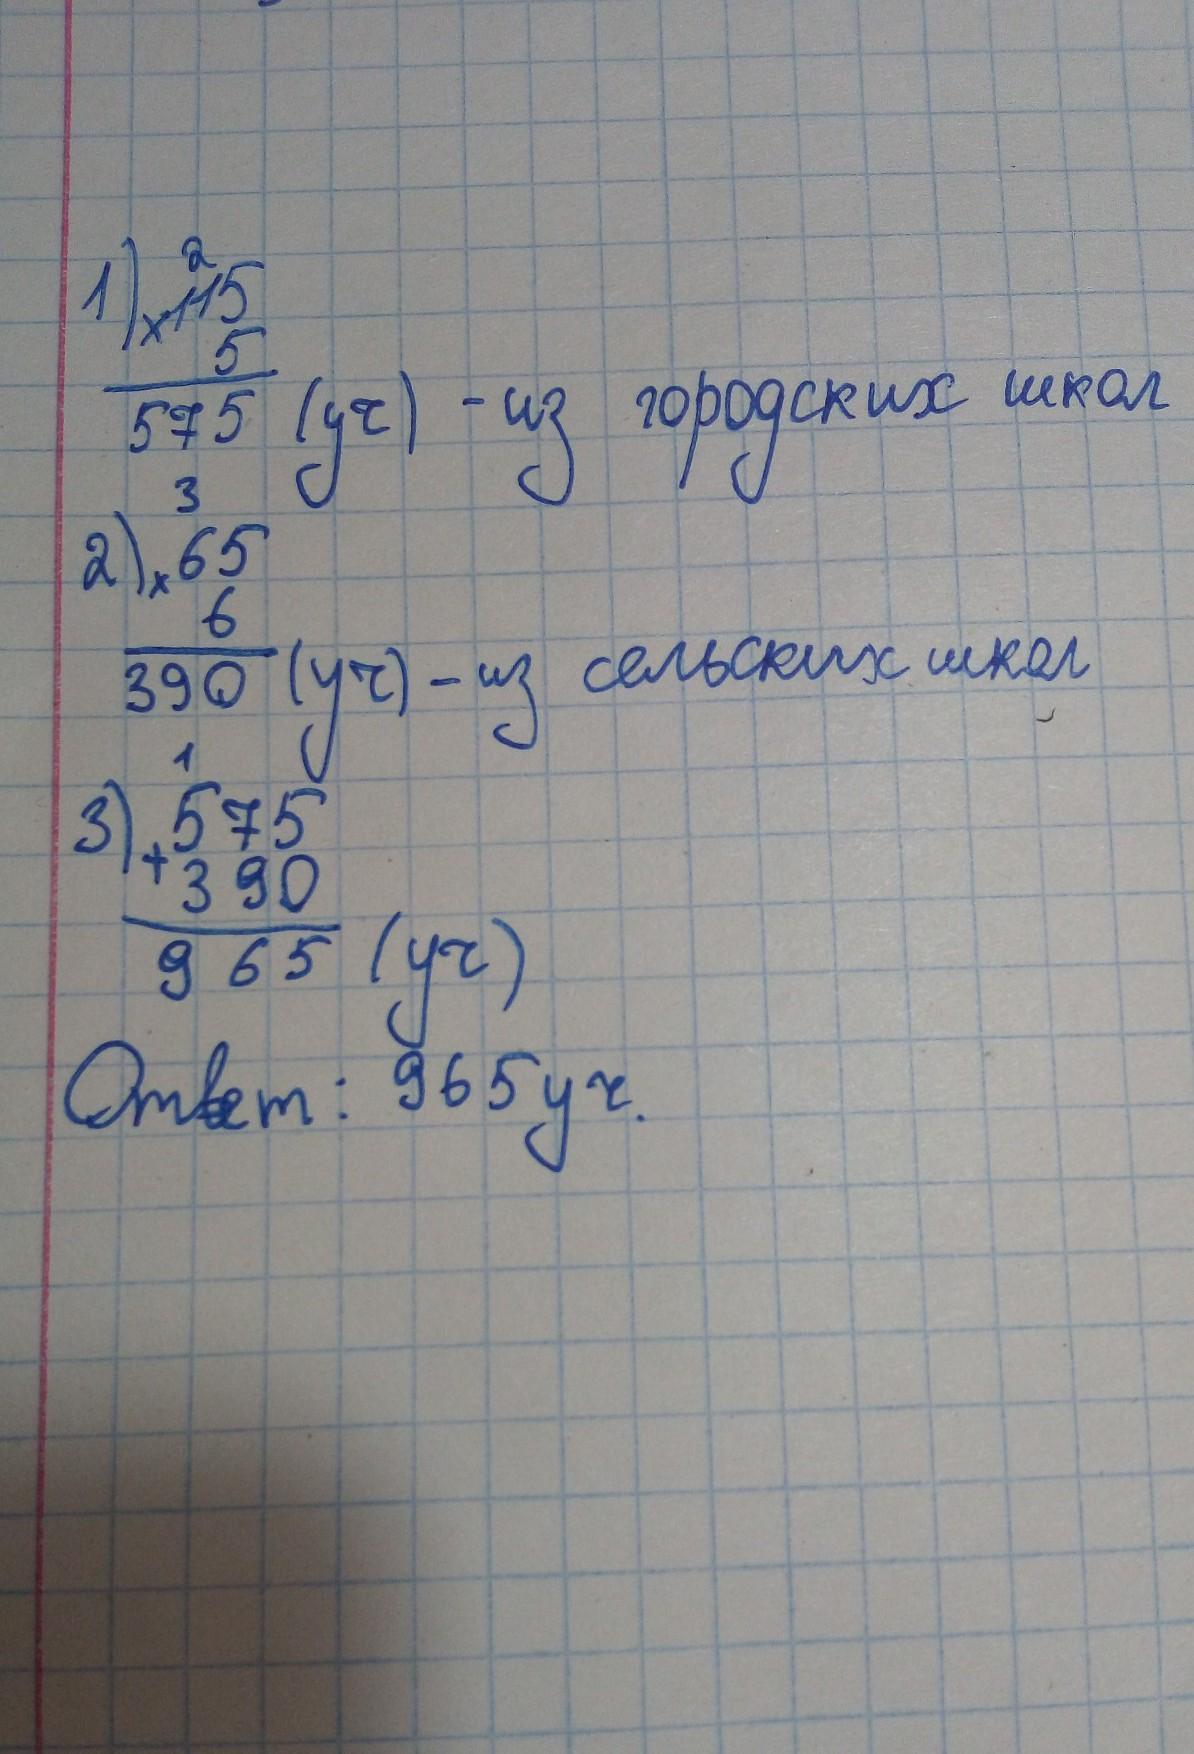 2
1) × 115
5
575 (уч) - из городских школ
3
2) × 65
6
390 (уч) - из сельских школ
1
3) + 575
390
965 (уч)
Ответ: 965 уч.